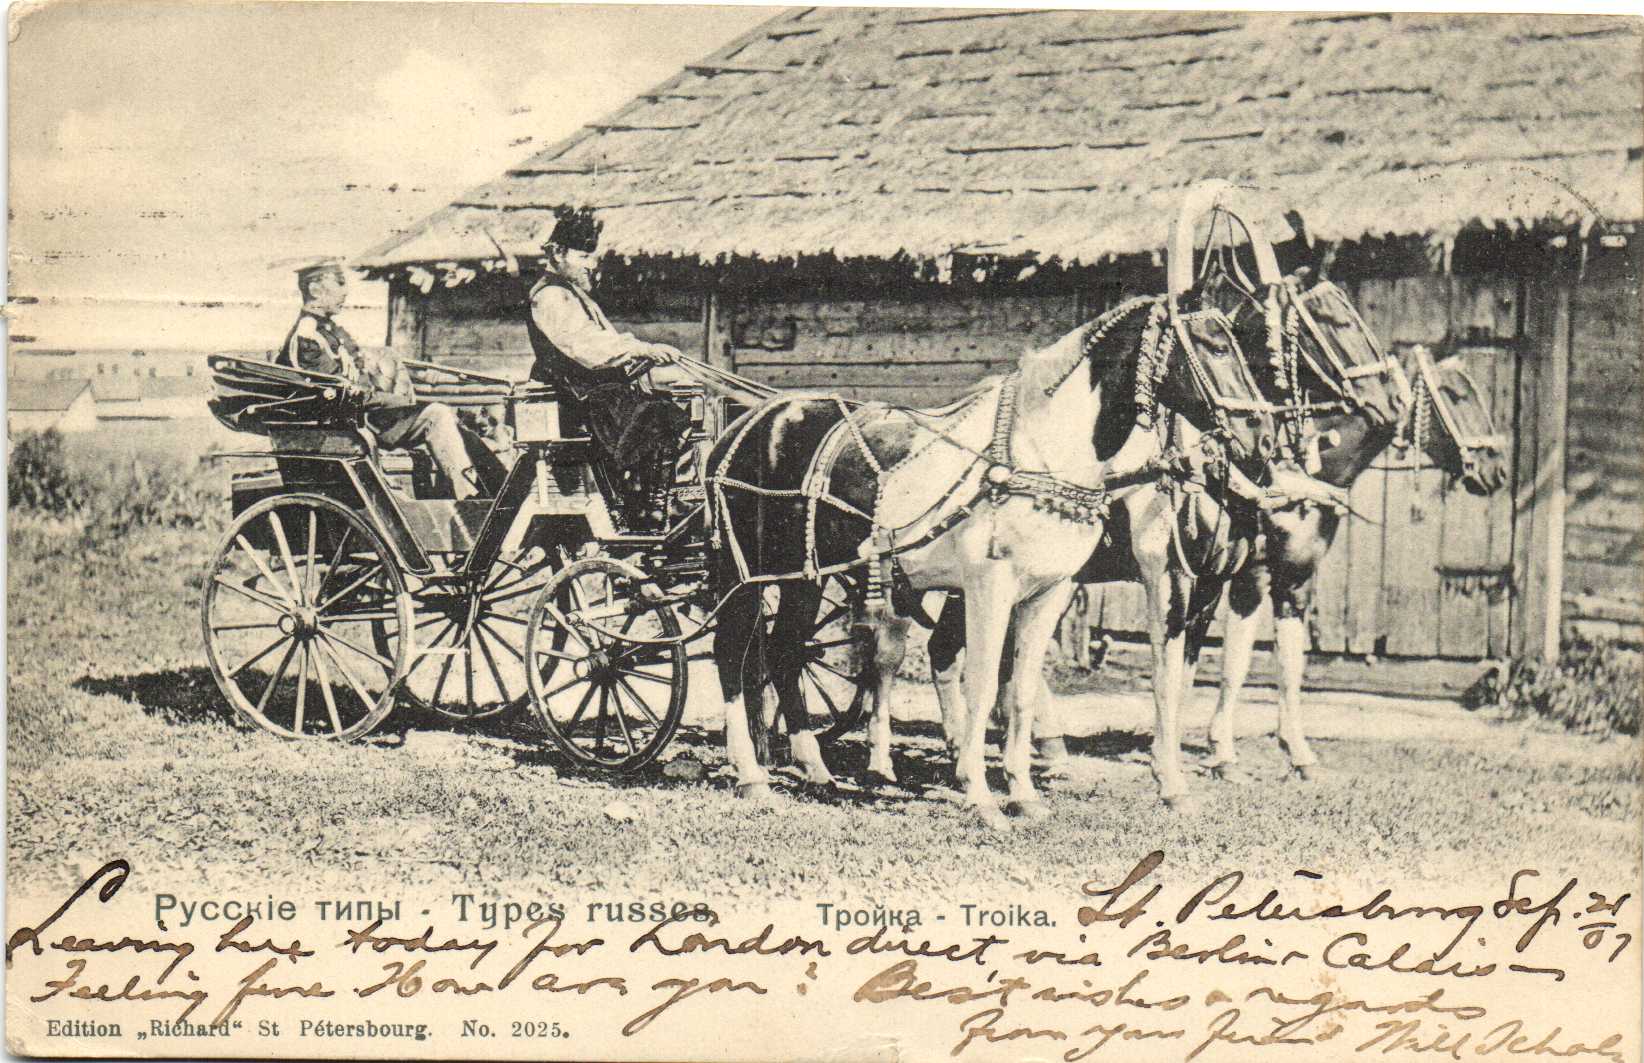 Русскіе типы - Types russes.
Тройка - Troika.
St. Petersburg Sep. 21/07
Leaving here today for London direct via Berlin - Calais -
Feeling fine. How are you? Best wishes & regards
from your friend Will
Edition „Richard“ St Pétersbourg. No. 2025.